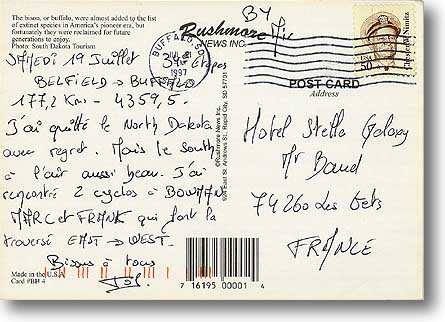 The bison, or buffalo, were almost added to the list
of extinct species in America's pioneer era, but
fortunately they were reclaimed for future
generations to enjoy.
Photo: South Dakota Tourism
SAMEDI 19 Juillet
BELFIELD → BUFFALO
177,2 Kms - 4359,5.
J'ai quitté le North Dakota
avec regret. Mais le south
a l'air aussi beau. J'ai
rencontré 2 cyclos à BOWMAN
MARC et FRANK qui font la
traversé EAST → WEST.
Bisous à tous
Made in the U.S.A.
Card #BH 4
Rushmore
NEWS INC.
39e étapes
BUFFALO, SD
JUL 21
1997
©Rushmore News Inc.
924 East St. Andrews St. Rapid City, SD 57701
7 16195 00001 4
BY
Air
USA
50
Chester W. Nimitz
POST CARD
Address
Hotel Stella Galaxy
Mr Baud
74260 Les Gets
FRANCE